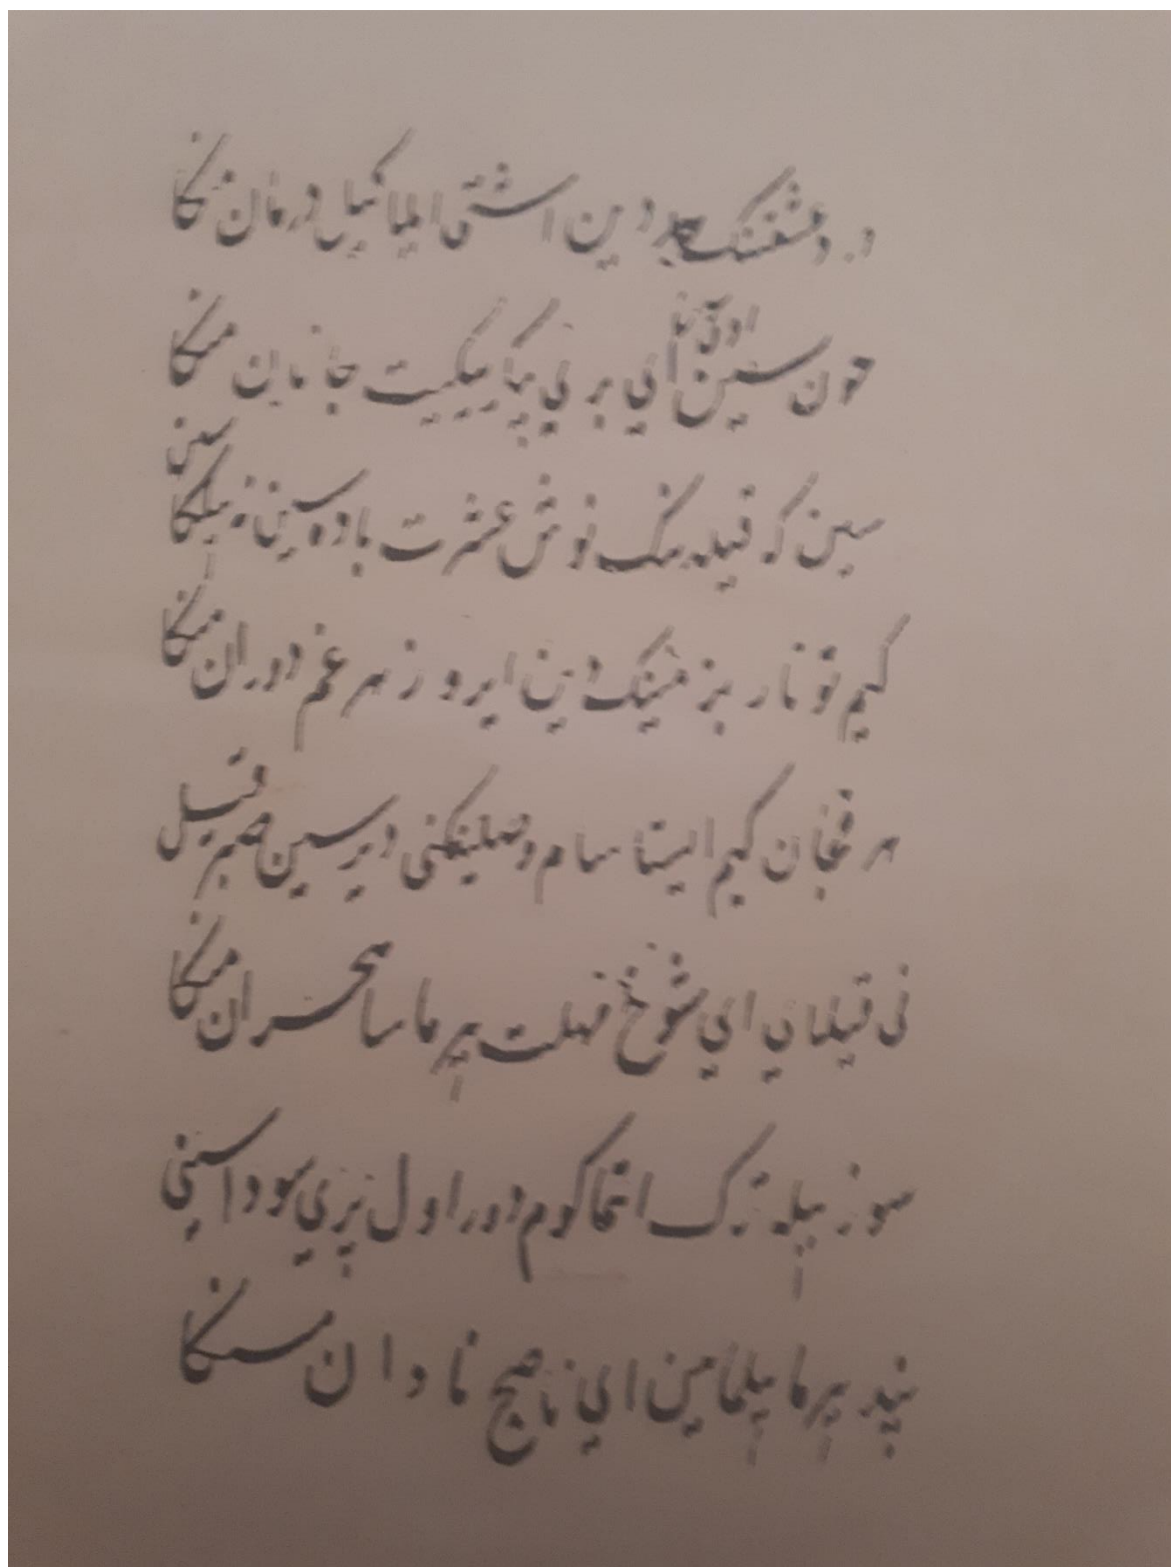 درد عشقنک حددین اشتی ایلاکیل درمان منکا
چون سین اولتورماک ایی بر نی پیکا بیکیت جانان منکا
سین که قیله نک نوش عشرت باده سینی
کیم توتار بزمینک دین ایرور زهر غم دوران منکا
هر قچان کیم ایستاسام وصلینکنی دیرسین صبر قیل
نی قیلای ای شوخ مهلت بیرماسا هجران منکا
سوز بیله ترک اتماکوم دور اول پری سوداسینی
پند بیرما بیلمامین ای ناصح نادان منکا